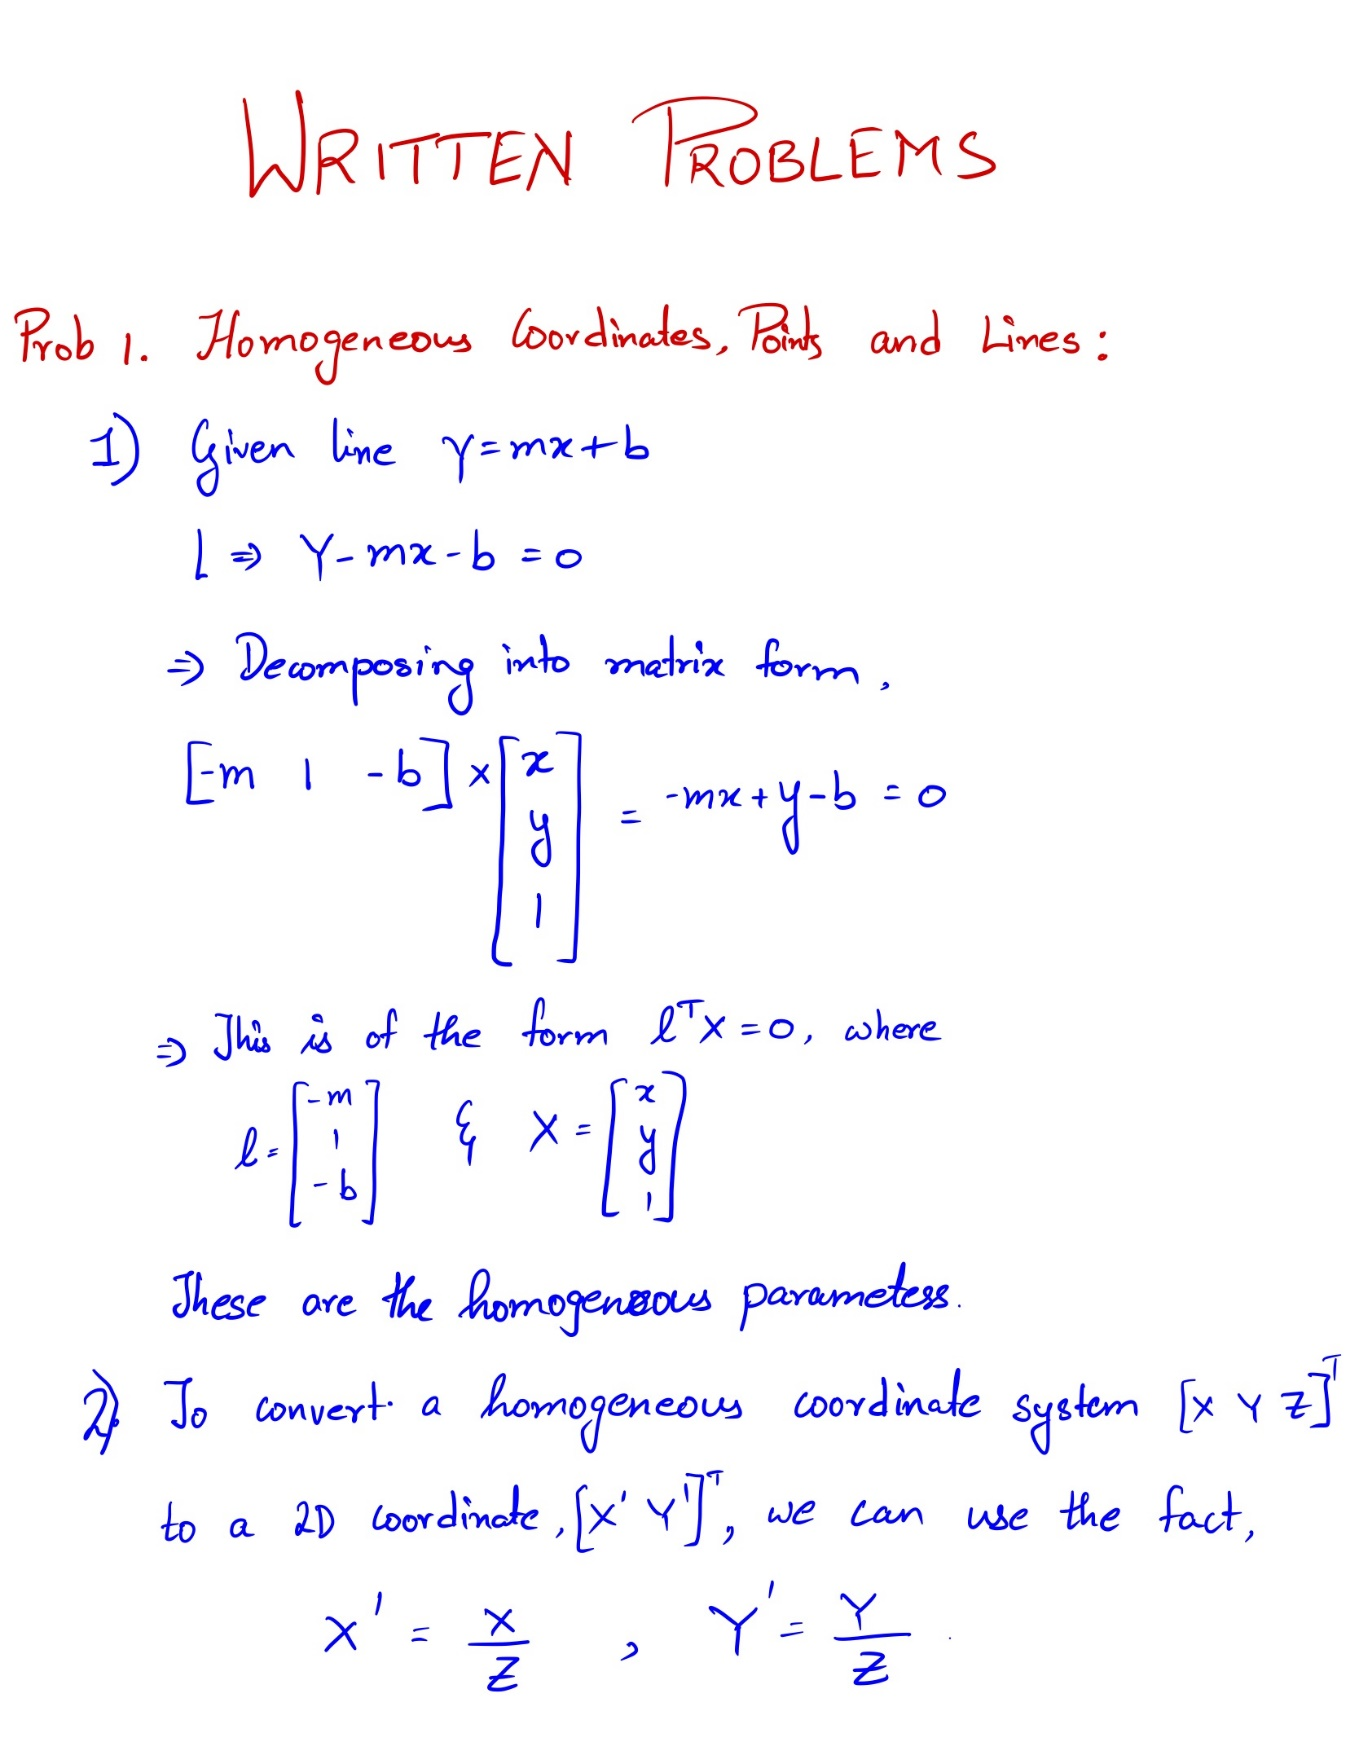 WRITTEN PROBLEMS
Prob 1. Homogeneous Coordinates, Points and Lines:
1) Given line Y=mx+b
l ⇒ Y-mx-b=0
⇒ Decomposing into matrix form,
[-m 1 -b] × [x y 1] = -mx+y-b = 0
⇒ This is of the form lᵀX=0, where
l = [-m 1 -b] & X = [x y 1]
These are the homogeneous parameters.
2) To convert a homogeneous coordinate system [X Y Z]ᵀ
to a 2D coordinate, [X' Y']ᵀ, we can use the fact,
X' = X/Z , Y' = Y/Z .